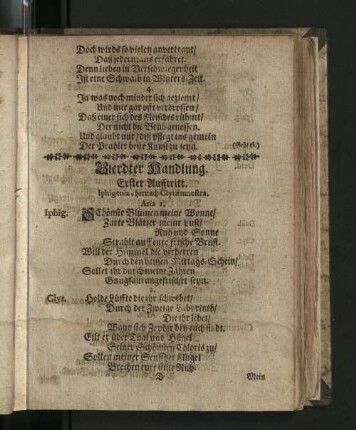 Doch wirds so vielen anvertraut/
Daß jedermans erfähret.
Denn lieben in Verschwiegenheit
Ist eine Schwalb in Winters-Zeit.
4.
Ja was noch minder sich geziemt/
Und mir gar oft verdrossen/
Daß einer sich des Fleisches rühmt/
Der nicht die Brüh genossen.
Und glaubt nur/ diß pflegt ins gemein
Der Prahler beste Kunst zu seyn. (Geht ab.)
Vierdter Handlung.
Erster Aufftritt.
Iphigenia, hernach Clytæmnestra.
Aria 1.
Iphig. Schönste Blumen meine Wonne/
Zarte Blätter meine Lust/
Ruh und Sonne
Strahlt auf eure frische Brust.
Will der Himmel die verherren
Durch den heissen Mittags-Schein/
Sollet ihr durch meine Zähren
Gnugsam angefrischet seyn.
2.
Clyt. Holde Lüffte die ihr schwebet/
Durch der Zweige Labyrinth/
Die ihr lebet/
Wann sich Zephyr bey euch findt.
Eilt er über Thal und Hügel
Seiner Schönsten Chloris zu/
Sollen meiner Seufftzer Flügel
Brechen eure stille Ruh.
D Mein